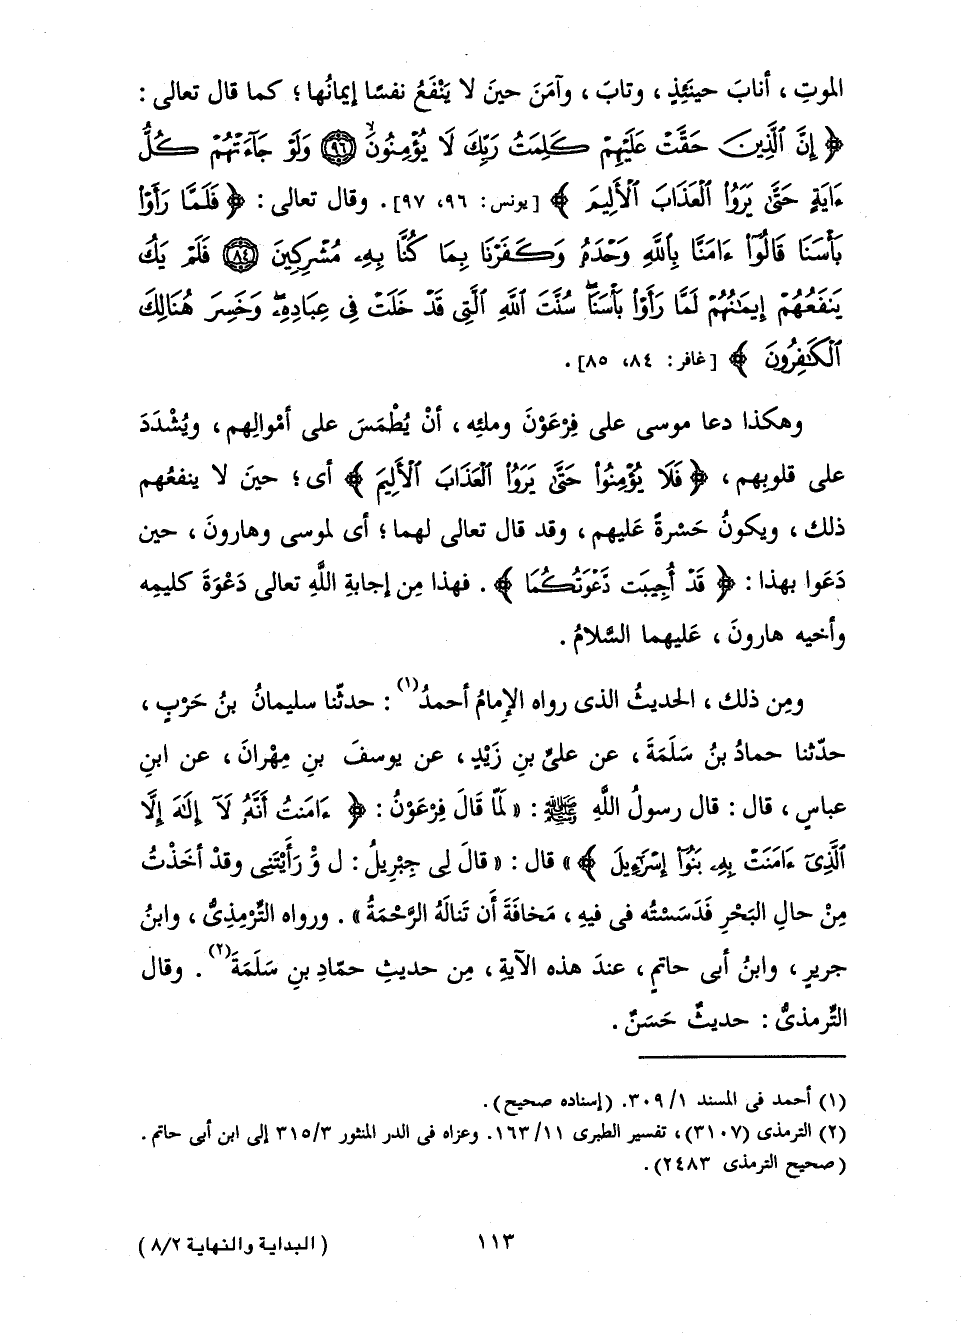 الموتِ ، أنابَ حينَئِذٍ ، وتابَ ، وآمَنَ حينَ لا يَنْفَعُ نفسًا إيمانُها ؛ كما قال تعالى :
﴿ إِنَّ ٱلَّذِينَ حَقَّتْ عَلَيْهِمْ كَلِمَتُ رَبِّكَ لَا يُؤْمِنُونَۙ ٩٦ وَلَوْ جَآءَتْهُمْ كُلُّ
ءَايَةٍ حَتَّىٰ يَرَوُا۟ ٱلْعَذَابَ ٱلْأَلِيمَ ﴾ [يونس: ٩٦، ٩٧] . وقال تعالى : ﴿ فَلَمَّا رَأَوْا۟
بَأْسَنَا قَالُوٓا۟ ءَامَنَّا بِٱللَّهِ وَحْدَهُۥ وَكَفَرْنَا بِمَا كُنَّا بِهِۦ مُشْرِكِينَ ٨٤ فَلَمْ يَكُ
يَنفَعُهُمْ إِيمَٰنُهُمْ لَمَّا رَأَوْا۟ بَأْسَنَاۖ سُنَّتَ ٱللَّهِ ٱلَّتِى قَدْ خَلَتْ فِى عِبَادِهِۦۖ وَخَسِرَ هُنَالِكَ
ٱلْكَٰفِرُونَ ﴾ [غافر: ٨٤، ٨٥] .
وهكذا دعا موسى على فِرْعَوْنَ وملئِه ، أنْ يُطْمَسَ على أمْوالِهم ، ويُشْدَدَ
على قلوبِهم ، ﴿ فَلَا يُؤْمِنُوا۟ حَتَّىٰ يَرَوُا۟ ٱلْعَذَابَ ٱلْأَلِيمَ ﴾ أى ؛ حينَ لا ينفعُهم
ذلك ، ويكونُ حَسْرةً عَليهم ، وقد قال تعالى لهما ؛ أى لموسى وهارونَ ، حين
دَعَوا بهذا : ﴿ قَدْ أُجِيبَت دَّعْوَتُكُمَا ﴾ . فهذا مِن إجابةِ اللَّهِ تعالى دَعْوَةَ كليمِه
وأخيه هارونَ ، عَليهما السَّلامُ .
ومِن ذلك ، الحديثُ الذى رواه الإمامُ أحمدُ(١) : حدثّنا سليمانُ بنُ حَرْبٍ ،
حدّثنا حمادُ بنُ سَلَمَةَ ، عن علىِّ بنِ زَيْدٍ ، عن يوسفَ بنِ مِهْرانَ ، عن ابنِ
عباسٍ ، قال : قال رسولُ اللَّهِ ﷺ : « لمّا قَالَ فِرْعَوْنُ : ﴿ ءَامَنتُ أَنَّهُۥ لَآ إِلَٰهَ إِلَّا
ٱلَّذِىٓ ءَامَنَتْ بِهِۦ بَنُوٓا۟ إِسْرَٰٓءِيلَ ﴾ » قال : « قالَ لِى جِبْرِيلُ : ل وْ رَأَيْتَنِى وقدْ أخَذْتُ
مِنْ حالِ البَحْرِ فَدَسَسْتُه فى فيهِ ، مَخافَةَ أَن تَنالَهُ الرَّحْمَةُ » . ورواه التِّرْمِذِىُّ ، وابنُ
جريرٍ ، وابنُ أبى حاتمٍ ، عندَ هذه الآيةِ ، مِن حديثِ حمّادِ بنِ سَلَمَةَ(٢) . وقال
التِّرمذىُّ : حديثٌ حَسَنٌ .
(١) أحمد فى المسند ٣٠٩/١. (إسناده صحيح) .
(٢) الترمذى (٣١٠٧)، تفسير الطبرى ١٦٣/١١. وعزاه فى الدر المنثور ٣١٥/٣ إلى ابن أبى حاتم .
(صحيح الترمذى ٢٤٨٣) .
١١٣
( البداية والنهاية ٨/٢ )